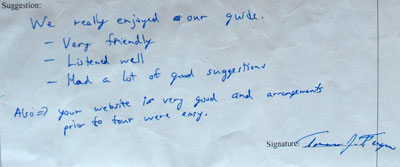 Suggestion:
We really enjoyed our guide.
- Very friendly
- Listened well
- Had a lot of good suggestions
Also ⇒ your website is very good and arrangements
prior to tour were easy.
Signature: